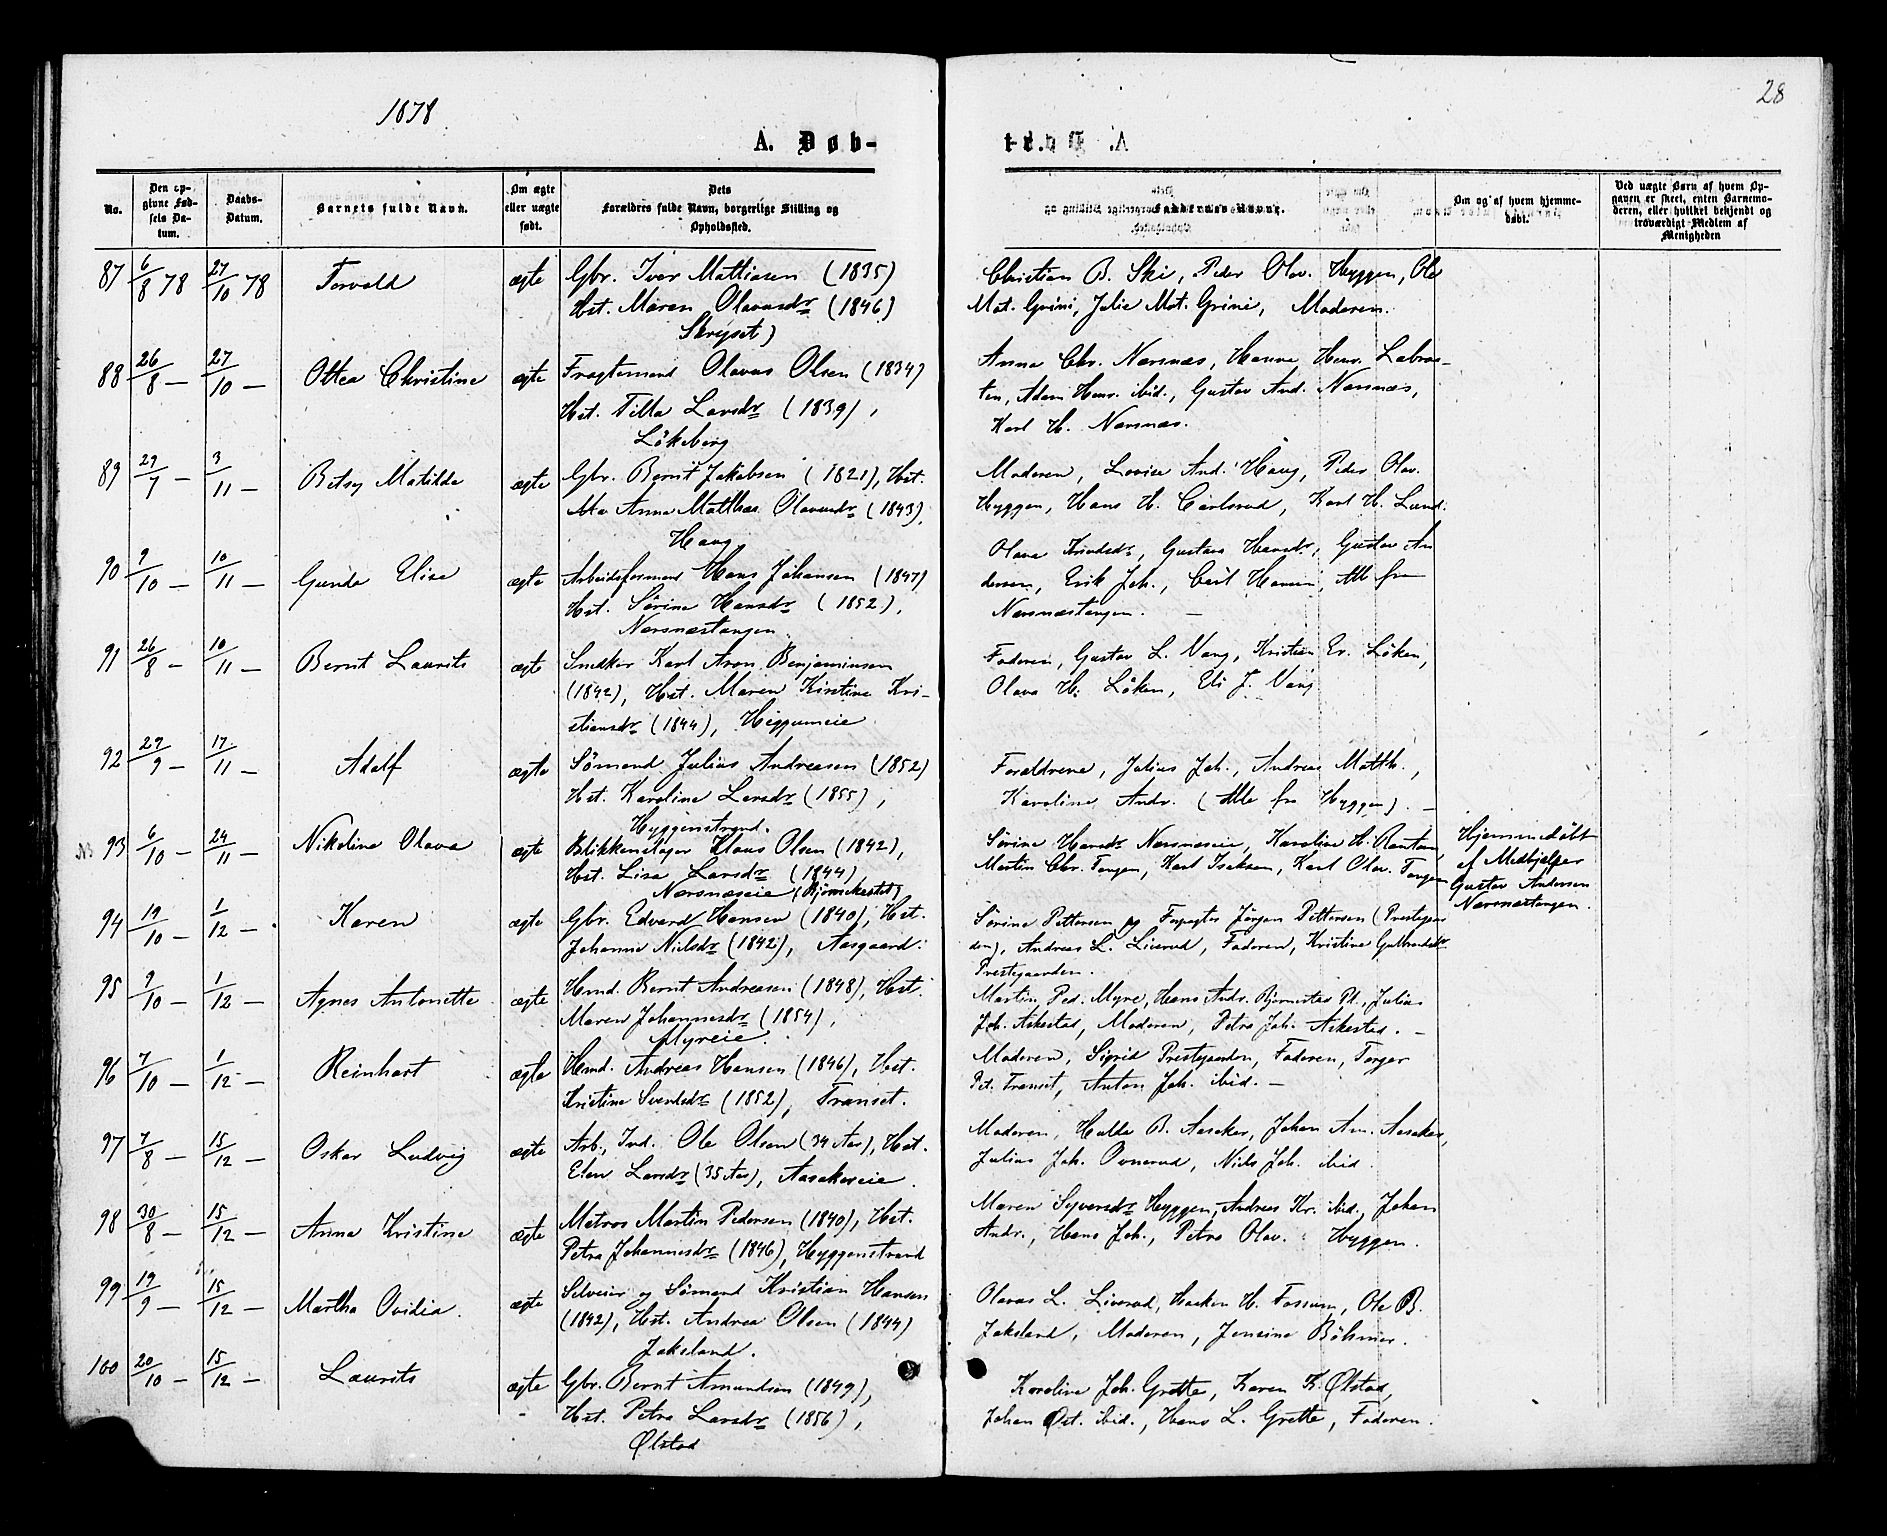 1878
28
A. Døb-
No.
Den op-
givne Fød-
sels Da-
tum.
Daabs-
Datum.
Barnets fulde Navn.
Om ægte
eller uægte
født.
Dets
Forældres fulde Navn, borgerlige Stilling og
Opholdssted.
Faddernes Navne.
Om og af hvem hjemme-
døbt.
Ved uægte Børn af hvem Op-
gaven er skeet, enten Barnemo-
deren, eller hvilket bekjendt og
troværdigt Medlem af
Menigheden
87 6/8 78 27/10 78 Torvald ægte Gbr. Iver Mathiasen (1835)
Hst. Maren Olavusdr (1846)
Skryset)
Christian B. Ski, Peder Olav. Hyggen, Ole
Mat. Grini, Julie Mat. Grini, Moderen.
88 26/8 — 27/10 — Ottea Christine ægte Fragtemand Olavus Olsen (1834)
Hst. Tilla Larsdr (1839),
Lökeberg
Anna Chr. Nærsnæs, Hanna Henr. Labraa-
ten, Adam Henr. ibid., Gustav And. Nærsnæs,
Karl H. Nærsnæs.
89 29/7 — 3/11 — Betsy Matilde ægte Gbr. Bernt Jakobsen (1821), Hst.
Anna Matthea Olavusdr (1843),
Haug
Moderen, Lovise And. Haug, Peder Olav.
Hyggen, Hans H. Carlsrud, Karl H. Lund.
90 9/10 — 10/11 — Gunda Elise ægte Arbeidsformand Hans Johansen (1847)
Hst. Sörine Hansdr (1852),
Nærsnæstangen.
Olava Knudsdr, Gustava Hansdr, Gustav An
dersen, Erik Joh., Carl Hansen, Alle fra
Nærsnæstangen. —
91 26/8 — 10/11 — Bernt Laurits ægte Snedker Karl Aron Benjaminsen
(1842), Hst. Maren Kirstine Kri-
stiansdr (1844), Heggumeie
Faderen, Gustav L. Vang, Kristian Ev. Löken,
Olava H. Löken, Eli J. Vang
92 29/9 — 17/11 — Adolf ægte Sömand Julius Andreasen (1852)
Hst. Karoline Larsdr (1855),
Hyggenstrand.
Forældrene, Julius Joh., Andreas Matth.,
Karoline Andr. (Alle fra Hyggen). —
NB 93 6/10 — 24/11 — Nikoline Olava ægte Blikkenslager Klaus Olsen (1842),
Hst. Lisa Larsdr (1844)
Nærsnæseie (Björnekastet)
Sörine Hansdr Nærsnæseie, Karoline H.
Martin Chr. Tangen, Karl Isaksen, Karl Olav. Tangen
Hjemmedöbt
af Medhjælper
Gustav Andersen
Nærsnæstangen.
94 19/10 — 1/12 — Karen ægte Gbr. Edvard Hansen (1840), Hst.
Johanne Nilsdr (1842), Aasgaard.
Sörine Pettersen og Forpagter Jörgen Pettersen (Prestegaar
den), Andreas L. Liverud, Faderen, Kristine Gulbrandsdr
Prestegaarden.
95 9/10 — 1/12 — Agnes Antonette ægte Hmd. Bernt Andreasen (1848), Hst.
Maren Johannesdr (1854),
Myreie.
Martin Ped. Myre, Hans Andr. Björnestad Pl., Julius
Joh. Askestad, Moderen, Petra Joh. Askestad. —
96 7/10 — 1/12 — Reinhart ægte Hmd. Andreas Hansen (1846), Hst.
Kristine Svendsdr (1852), Transet.
Moderen, Sigrid Prestegaarden, Faderen, Torger
Pet. Transet, Anton Joh. ibid. —
97 7/8 — 15/12 — Oskar Ludvig ægte Arb., Ind. Ole Olsen (34 Aar), Hst.
Elen Larsdr (35 Aar), Aasakereie.
Moderen, Hulda B. Aasaker, Johan Am. Aasaker,
Julius Joh. Ovnerud, Niels Joh. ibid.
98 30/8 — 15/12 — Anna Kristine ægte Matros Martin Pedersen (1840), Hst.
Petra Johannesdr (1846), Hyggenstrand
Maren Syversdr Hyggen, Andreas Kr. ibid., Johan
Andr., Hans Joh., Petra Olav. Hyggen.
99 19/9 — 15/12 — Martha Ovidia. ægte Selveier og Sömand Kristian Hansen
(1842), Hst. Andrea Olsen (1844)
Jaksland.
Olavas L. Liverud, Haaken H. Fossum, Ole B.
Jaksland, Moderen, Jensine Böhmer.
100 20/10 — 15/12 — Laurits ægte Gbr. Bernt Amundsen (1849),
Hst. Petra Larsdr (1856),
Ølstad
Karoline Joh. Grette, Karen K. Ølstad,
Johan Øst. ibid., Hans L. Grette, Faderen.